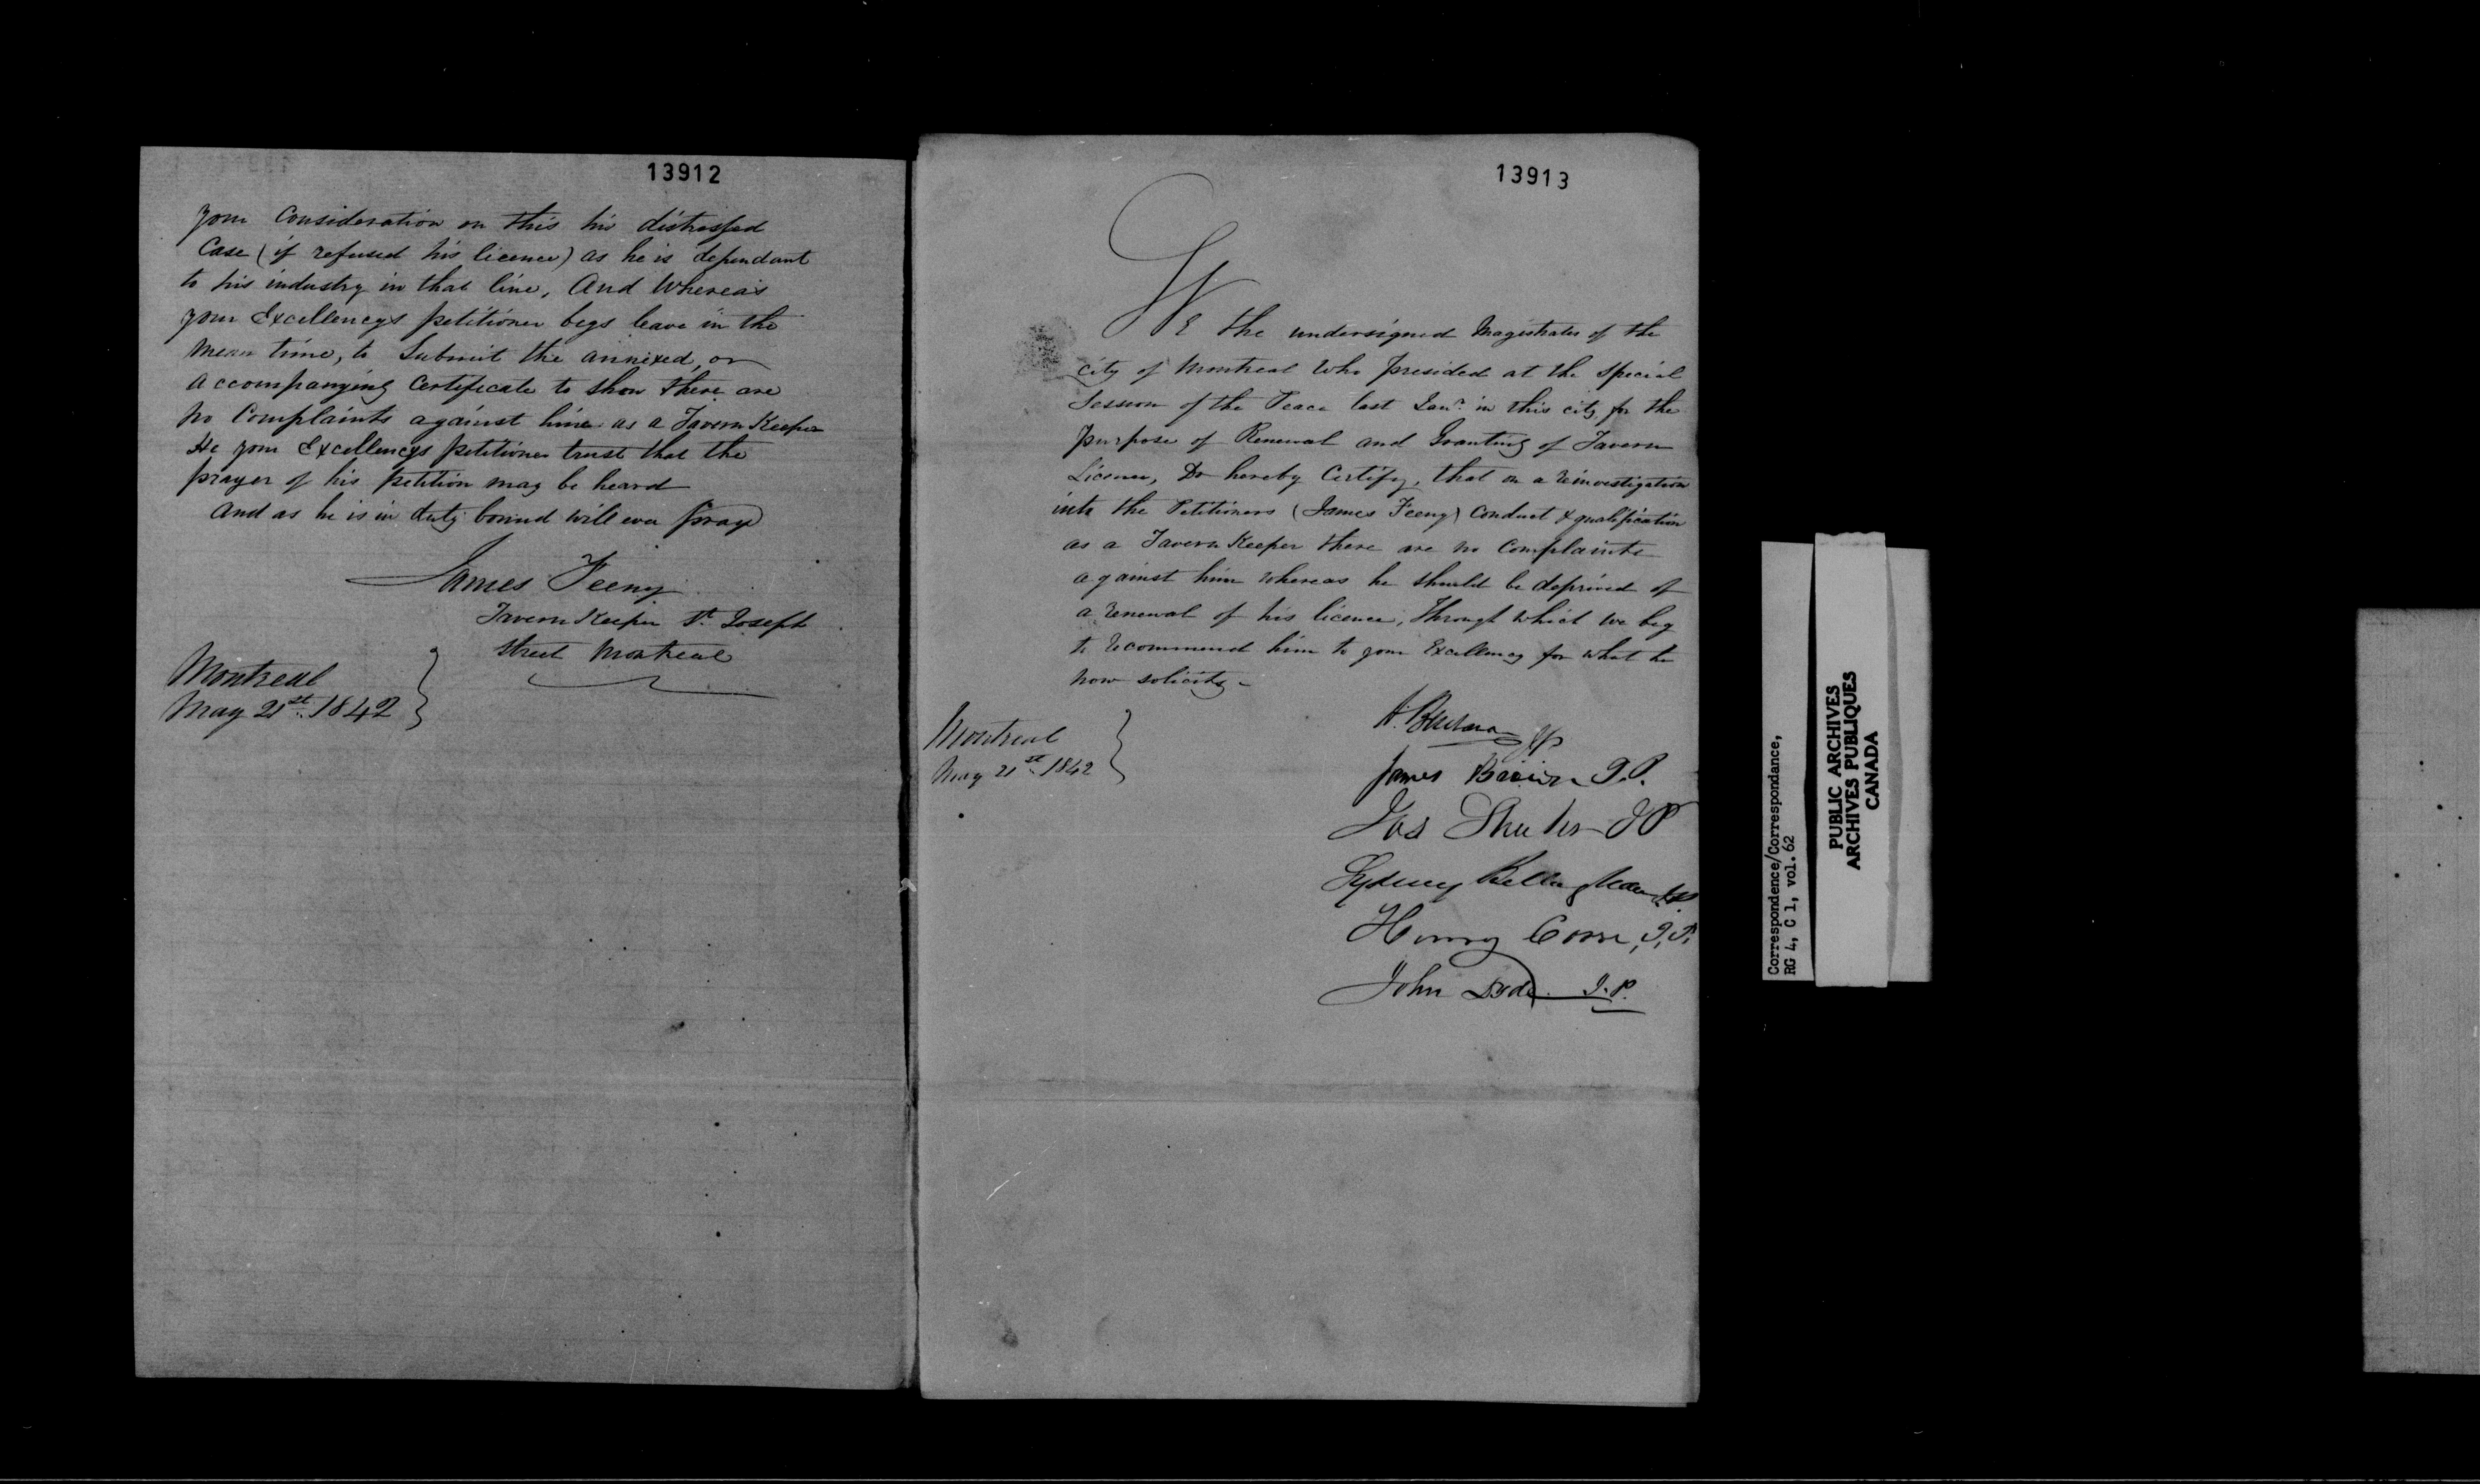 13912
your Consideration on this his distressed
Case (if refused his licence) as he is dependant
to his industry in that line, And Whereas
your Excellencys petitioner begs leave in the
mean time, to Submit the annexed, or
accompanying Certificate to show there are
no Complaints against him as a Tavern Keeper
He your Excellencys petitioner trust that the
prayer of his petition may be heard
And as he is in duty bound will ever pray
James Feeny
Tavern Keeper St. Joseph
Street Montreal
Montreal
May 21st. 1842
13913
WE the undersigned Magistrates of the
City of Montreal Who presided at the Special
Session of the Peace last Jany. in this city, for the
purpose of Renewal and Granting of Tavern
Licence, Do hereby Certify, that on a reinvestigation
into the Petitioners (James Feeny) Conduct & qualification
as a Tavern Keeper there are no Complaints
against him whereas he should be deprived of
a renewal of his licence, through which we beg
to recommend him to your Excellency for what he
now solicits,
Montreal
May 21st. 1842
James J.P.
Jos Shuter J P
Sydney Bellingham
Henry Corse, J.P.
John Dode J.P.
Correspondence/Correspondance,
RG 4, C 1, vol. 62
PUBLIC ARCHIVES
ARCHIVES PUBLIQUES
CANADA